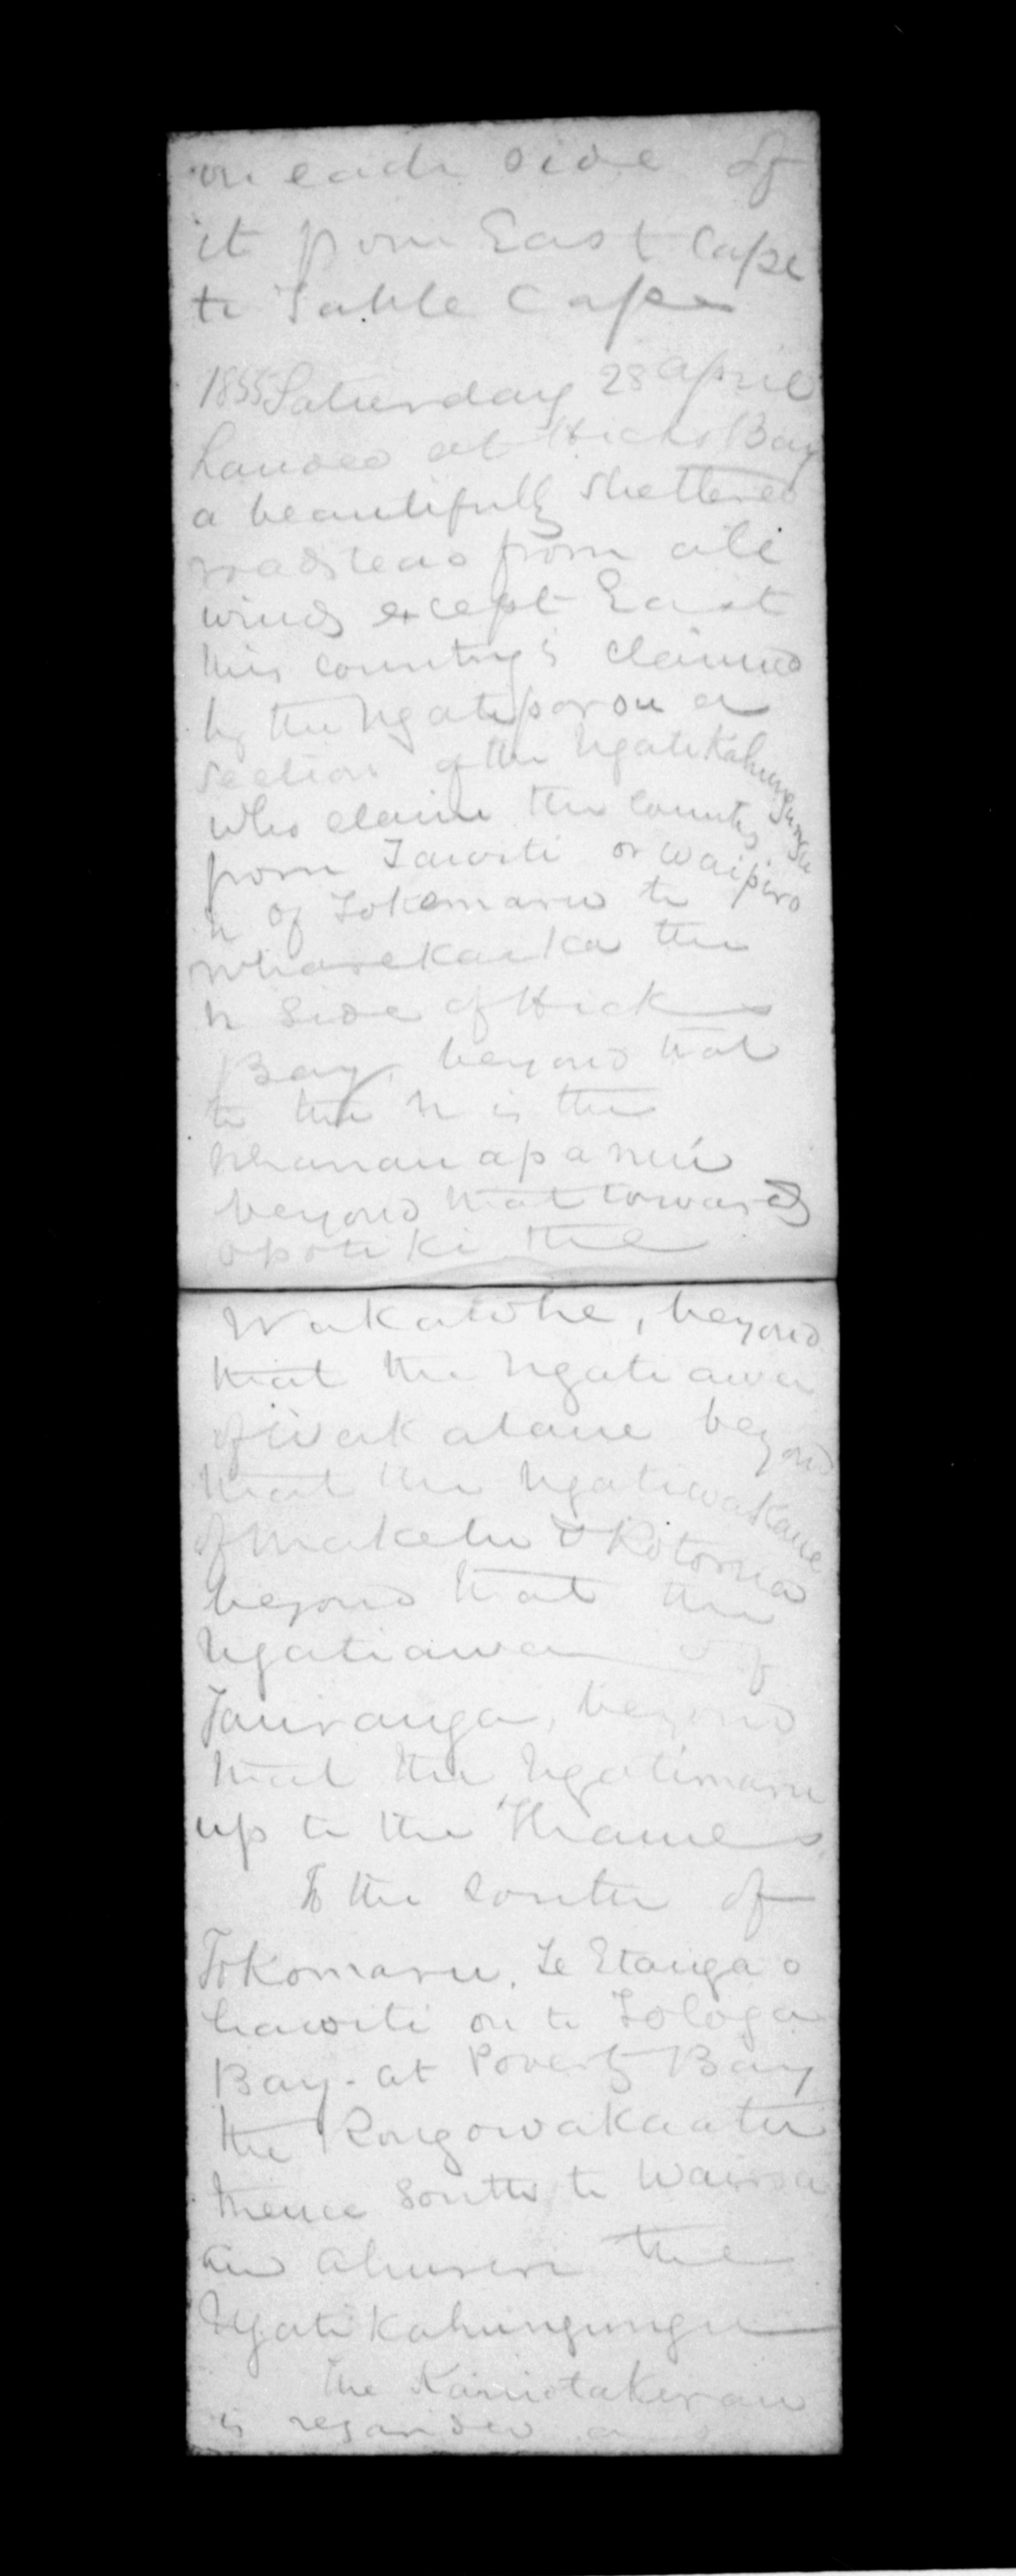 on each side of
it from East Cape
to Table Cape
1855 Saturday 28 April
Landed at Hicks Bay
a beautifully sheltered
roadstead from all
winds except East
this country is claimed
by the Ngatiporou a
section of the NgatiKahungungu
who claim the country
from Tawiti or Waipiro
N of Tokomaru to
Wharekaika the
N side of Hicks
Bay, beyond that
to the N is the
Whanauapanui
beyond that towards
opotiki the
Wakatohe, beyond
that the Ngatiawa
of Wakatane beyond
that the Ngatiwakaue
of Maketu & Rotorua
beyond that the
Ngatiawa of
Tauranga, beyond
that the Ngatimaru
up to the Thames.
To the South of
Tokomaru. Te Etanga o
hawiti on to Tologa
Bay. at Poverty Bay
the Rongowakaata
thence South to Wairoa
and ahuriri the
NgatiKahungungu
the
is regarded as